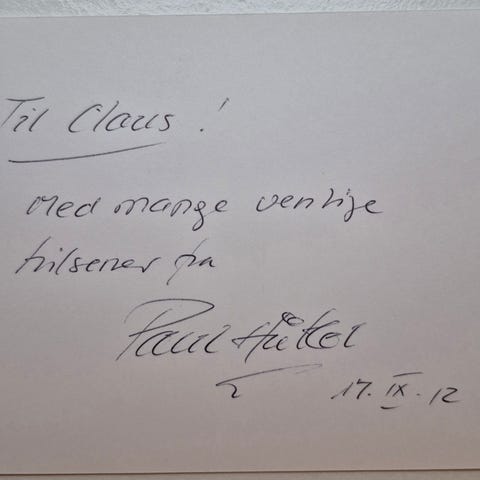 Til Claus!
Med mange venlige
hilsener fra
Paul Hüttel
17. IX. 12